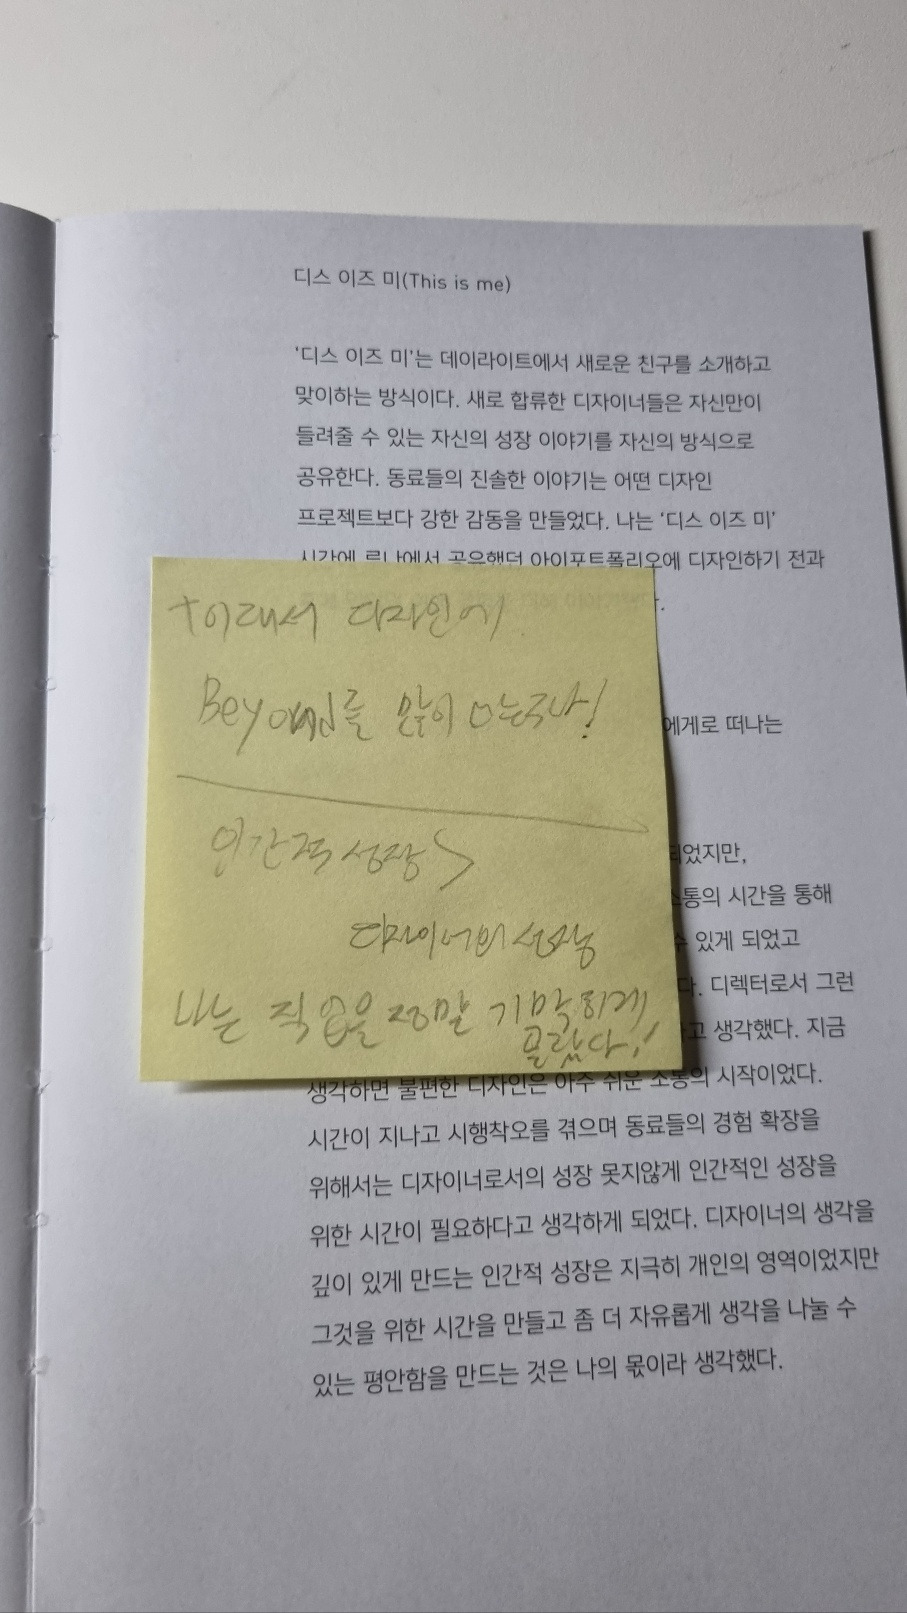 디스 이즈 미(This is me)
'디스 이즈 미'는 데이라이트에서 새로운 친구를 소개하고
맞이하는 방식이다. 새로 합류한 디자이너들은 자신만이
들려줄 수 있는 자신의 성장 이야기를 자신의 방식으로
공유한다. 동료들의 진솔한 이야기는 어떤 디자인
프로젝트보다 강한 감동을 만들었다. 나는 '디스 이즈 미'
시간에 루나에서 공유했던 아이포트폴리오에 디자인하기 전과
다.
+이래서 디자인에
Beyond를 많이 쓰는구나!
에게로 떠나는
인간적 성장>
디자이너의 성장
나는 직업을 정말 기막히게
골랐다!
되었지만,
소통의 시간을 통해
수 있게 되었고
다. 디렉터로서 그런
고 생각했다. 지금
생각하면 불편한 디자인은 아주 쉬운 소통의 시작이었다.
시간이 지나고 시행착오를 겪으며 동료들의 경험 확장을
위해서는 디자이너로서의 성장 못지않게 인간적인 성장을
위한 시간이 필요하다고 생각하게 되었다. 디자이너의 생각을
깊이 있게 만드는 인간적 성장은 지극히 개인의 영역이었지만
그것을 위한 시간을 만들고 좀 더 자유롭게 생각을 나눌 수
있는 평안함을 만드는 것은 나의 몫이라 생각했다.